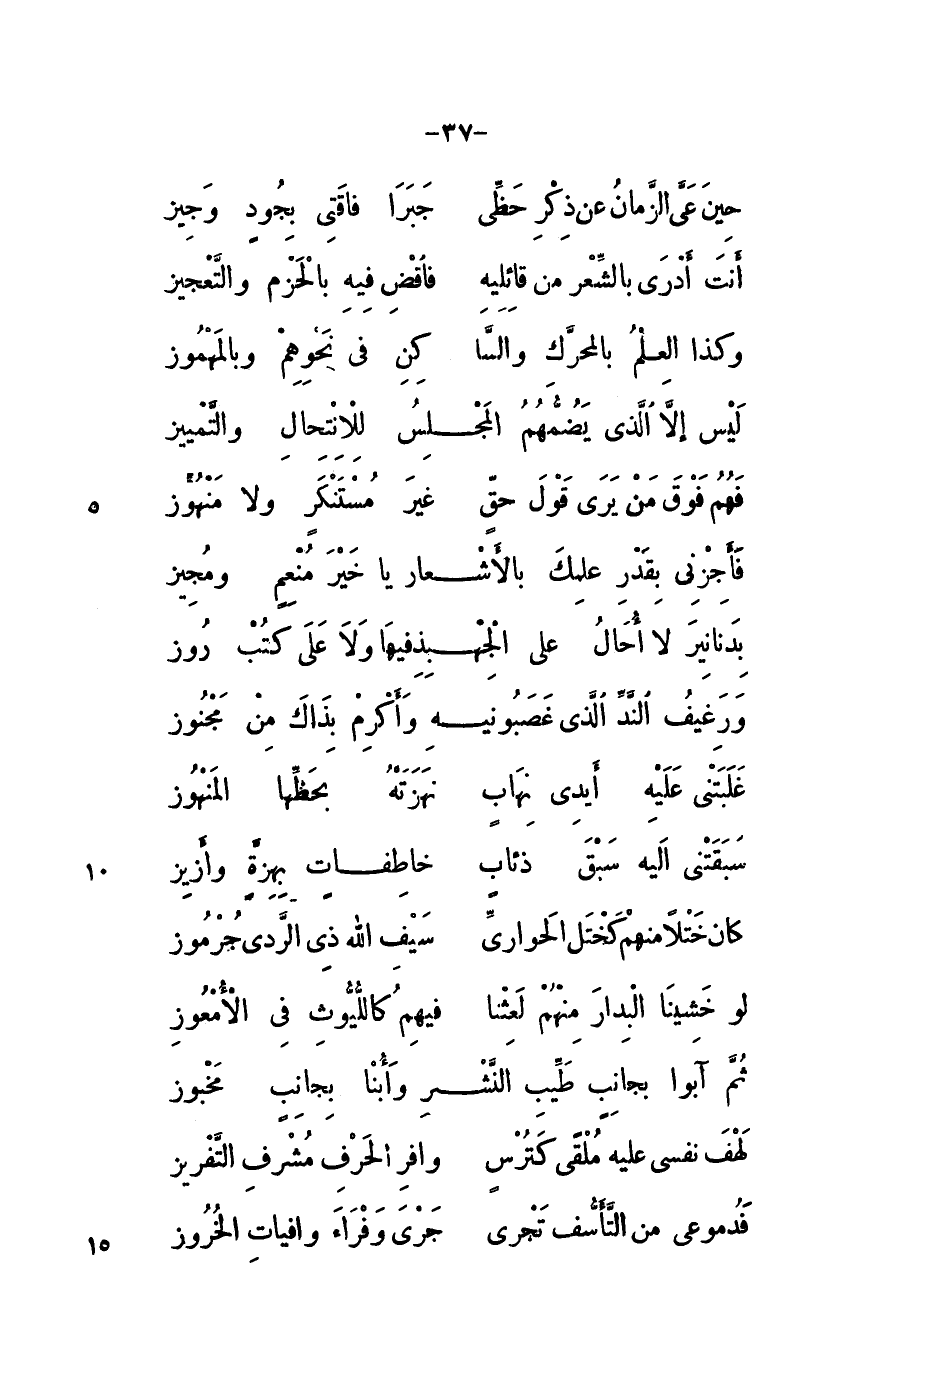 -٣٧-
حينَ عَىَّ الزَّمانُ عن ذِكْرِ حَظِّى جَبَرَا فاقَتِى بِجُودٍ وَجِيز
أَنتَ أَدْرَى بالشِّعْر من قائلِيهِ فاُقْضِ فيهِ بِالْحَزْم والتَّعْجيز
وكذا العِلْمُ بالمحرَّكِ والسَّا كِنِ فى نَحْوِهِمْ وبالمَهْمُوز
لَيْس إلاَّ الَّذى يَضُمُّهُمُ المَجْلِسُ لِلْاِنْتِحالِ والتَّمْييز
فَهُمُ فَوْقَ مَنْ يَرَى قَوْلَ حقٍّ غيرَ مُسْتَنْكَرٍ ولا مَنْهُوز ٥
فَأَجِزْنِى بِقَدْرِ علمِكَ بالأَشْعار يا خَيْرَ مُنْعِمٍ ومُجِيز
بِدَنانِيرَ لا أُحَالُ على الْجِهْبِذِ فيهَا وَلاَ عَلَى كتُبْ رُوز
وَرَغِيفُ النَّدِّ الَّذى غَصَبُونيهِ وَأَكْرِمْ بِذَاكَ مِنْ مَجْنُوز
غَلَبَتْنى عَلَيْهِ أَيدِى نِهَابٍ نَهَزَتْهُ بحَظِّها المَنْهُوز
سَبَقَتْنى اَليه سَبْقَ ذئابٍ خاطِفاتٍ بِهِزَّةٍ وأَزِيز ١٠
كان خَتْلاً منهمْ كَخَتْل الَحوارىِّ سَيْفِ الله ذِى الرَّدى جُرْمُوز
لو خَشِينَا الْبِدارَ مِنْهُمْ لَعِثْنا فيهِمُ كاللُّيُوثِ فِى الْأُمْعُوزِ
ثُمَّ آبوا بجانِبٍ طَيِّبِ النَّشْرِ وَأُبْنَا بِجانِبٍ مَخْبوز
لَهْفَ نفسى عليه مُلْقًى كَتُرْسٍ وافرِ الحَرْفِ مُشْرفِ التَّفْرِيز
فَدُموعى من التَّأَسُّف تَجْرى جَرْىَ وَفْرَاءَ وافياتِ الخُرُوز ١٥